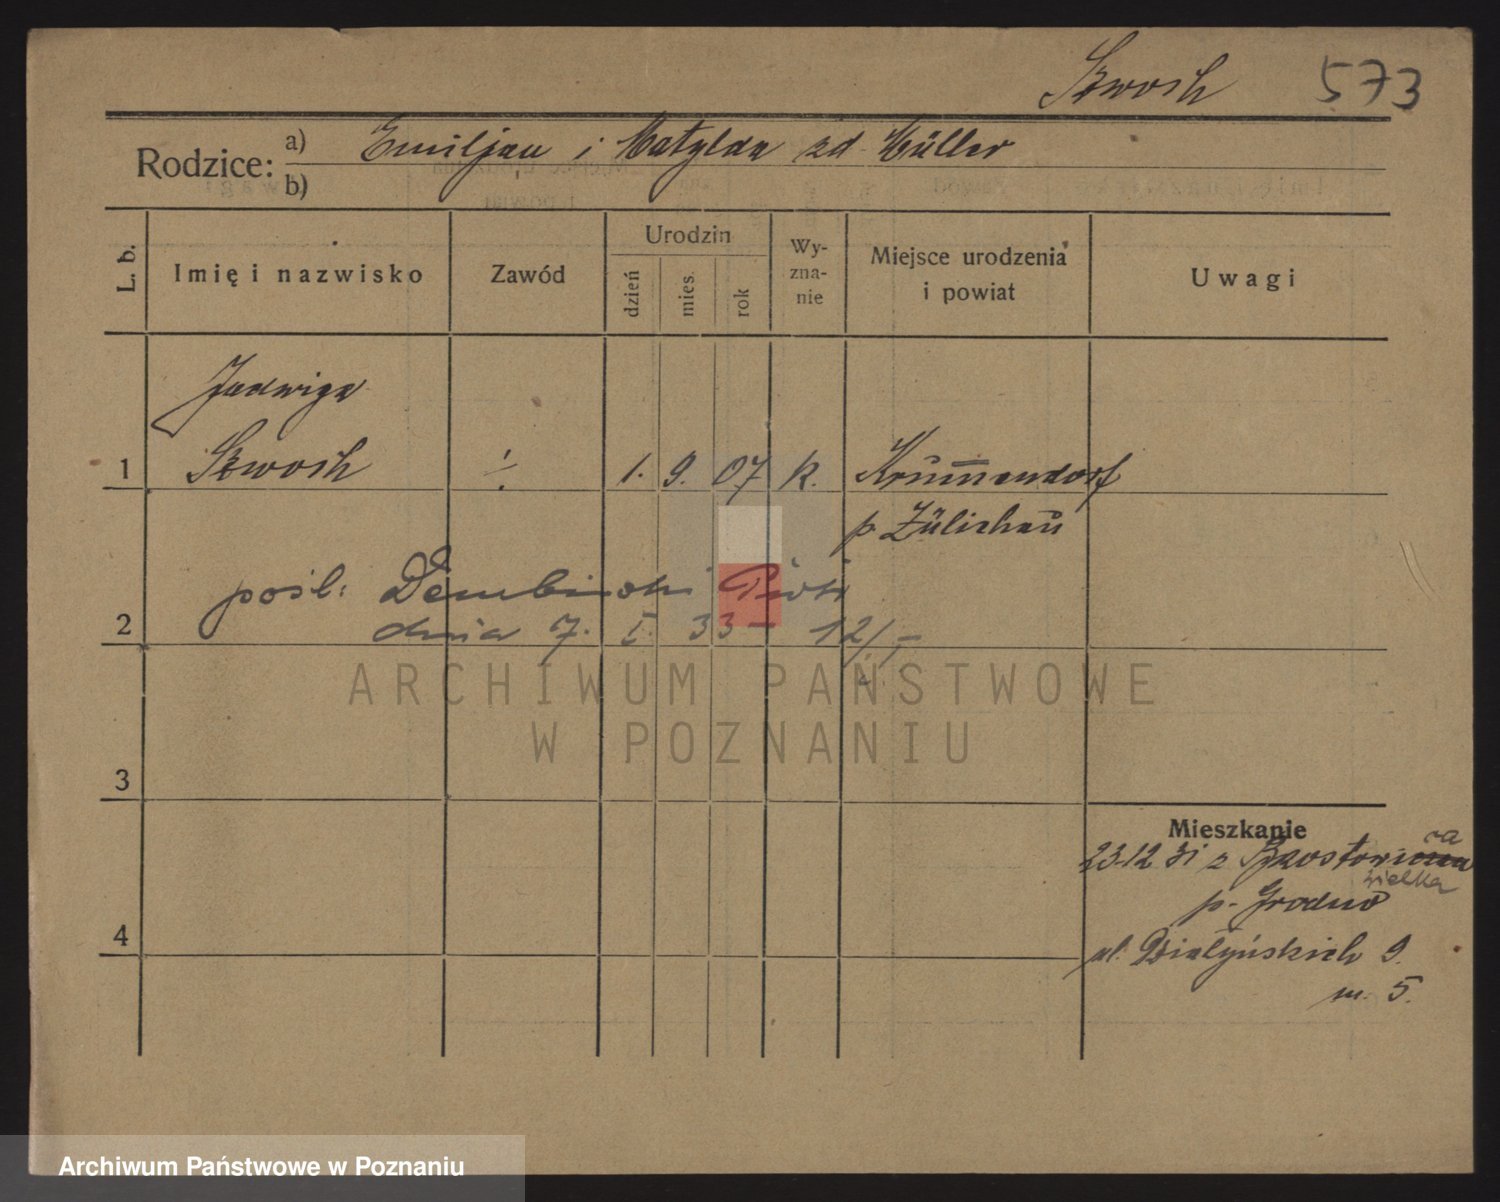 Szwosch 573
Rodzice: a) Emiljan i Matylda zd. Müller
b)
L. b. Imię i nazwisko Zawód Urodzin dzień mies. rok Wy-zna-nie Miejsce urodzenia i powiat Uwagi
Jadwiga
1 1. 9. 07 k. Krummendorf
p. Züllichau
pośl: Dembiński Piotr
2 dnia 7. I. 33
3
Mieszkanie
23.12 31 z Brzostowica
wielka
p. Grodno
4 ul. Działyńskich 9.
m. 5.
ARCHIWUM PAŃSTWOWE
W POZNANIU
Archiwum Państwowe w Poznaniu